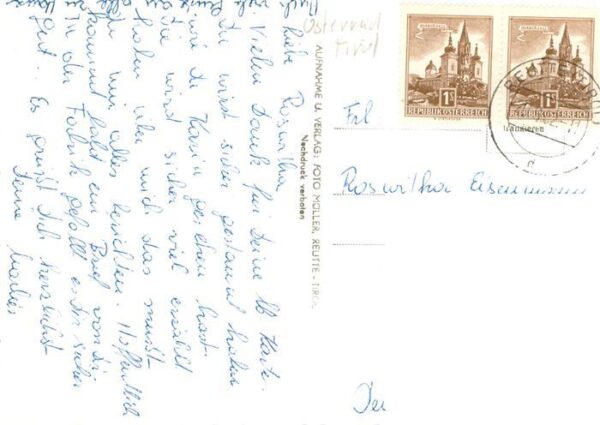 Liebe Roswitha
Vielen Dank für Deine lb Karte.
Du wirst sicher gestaunt haben
wie du Karin gesehen hast.
die wird sicher viel erzählt
haben aber auch das musst
mir alles berichten. Hoffentlich
bekommt bald ein Brief von dir
in der Fabrik gefällt es dir sicher
gut. Es grüsst Dich herzlichst
Deine
Österreich
Tirol
AUFNAHME U. VERLAG: FOTO MÜLLER, REUTTE - TIROL
Nachdruck verboten
MARIAZELL
1S
REPUBLIK ÖSTERREICH
MARIAZELL
1S
REPUBLIK ÖSTERREICH
REUTTE, TIROL
Frl
Roswitha Eisenmann